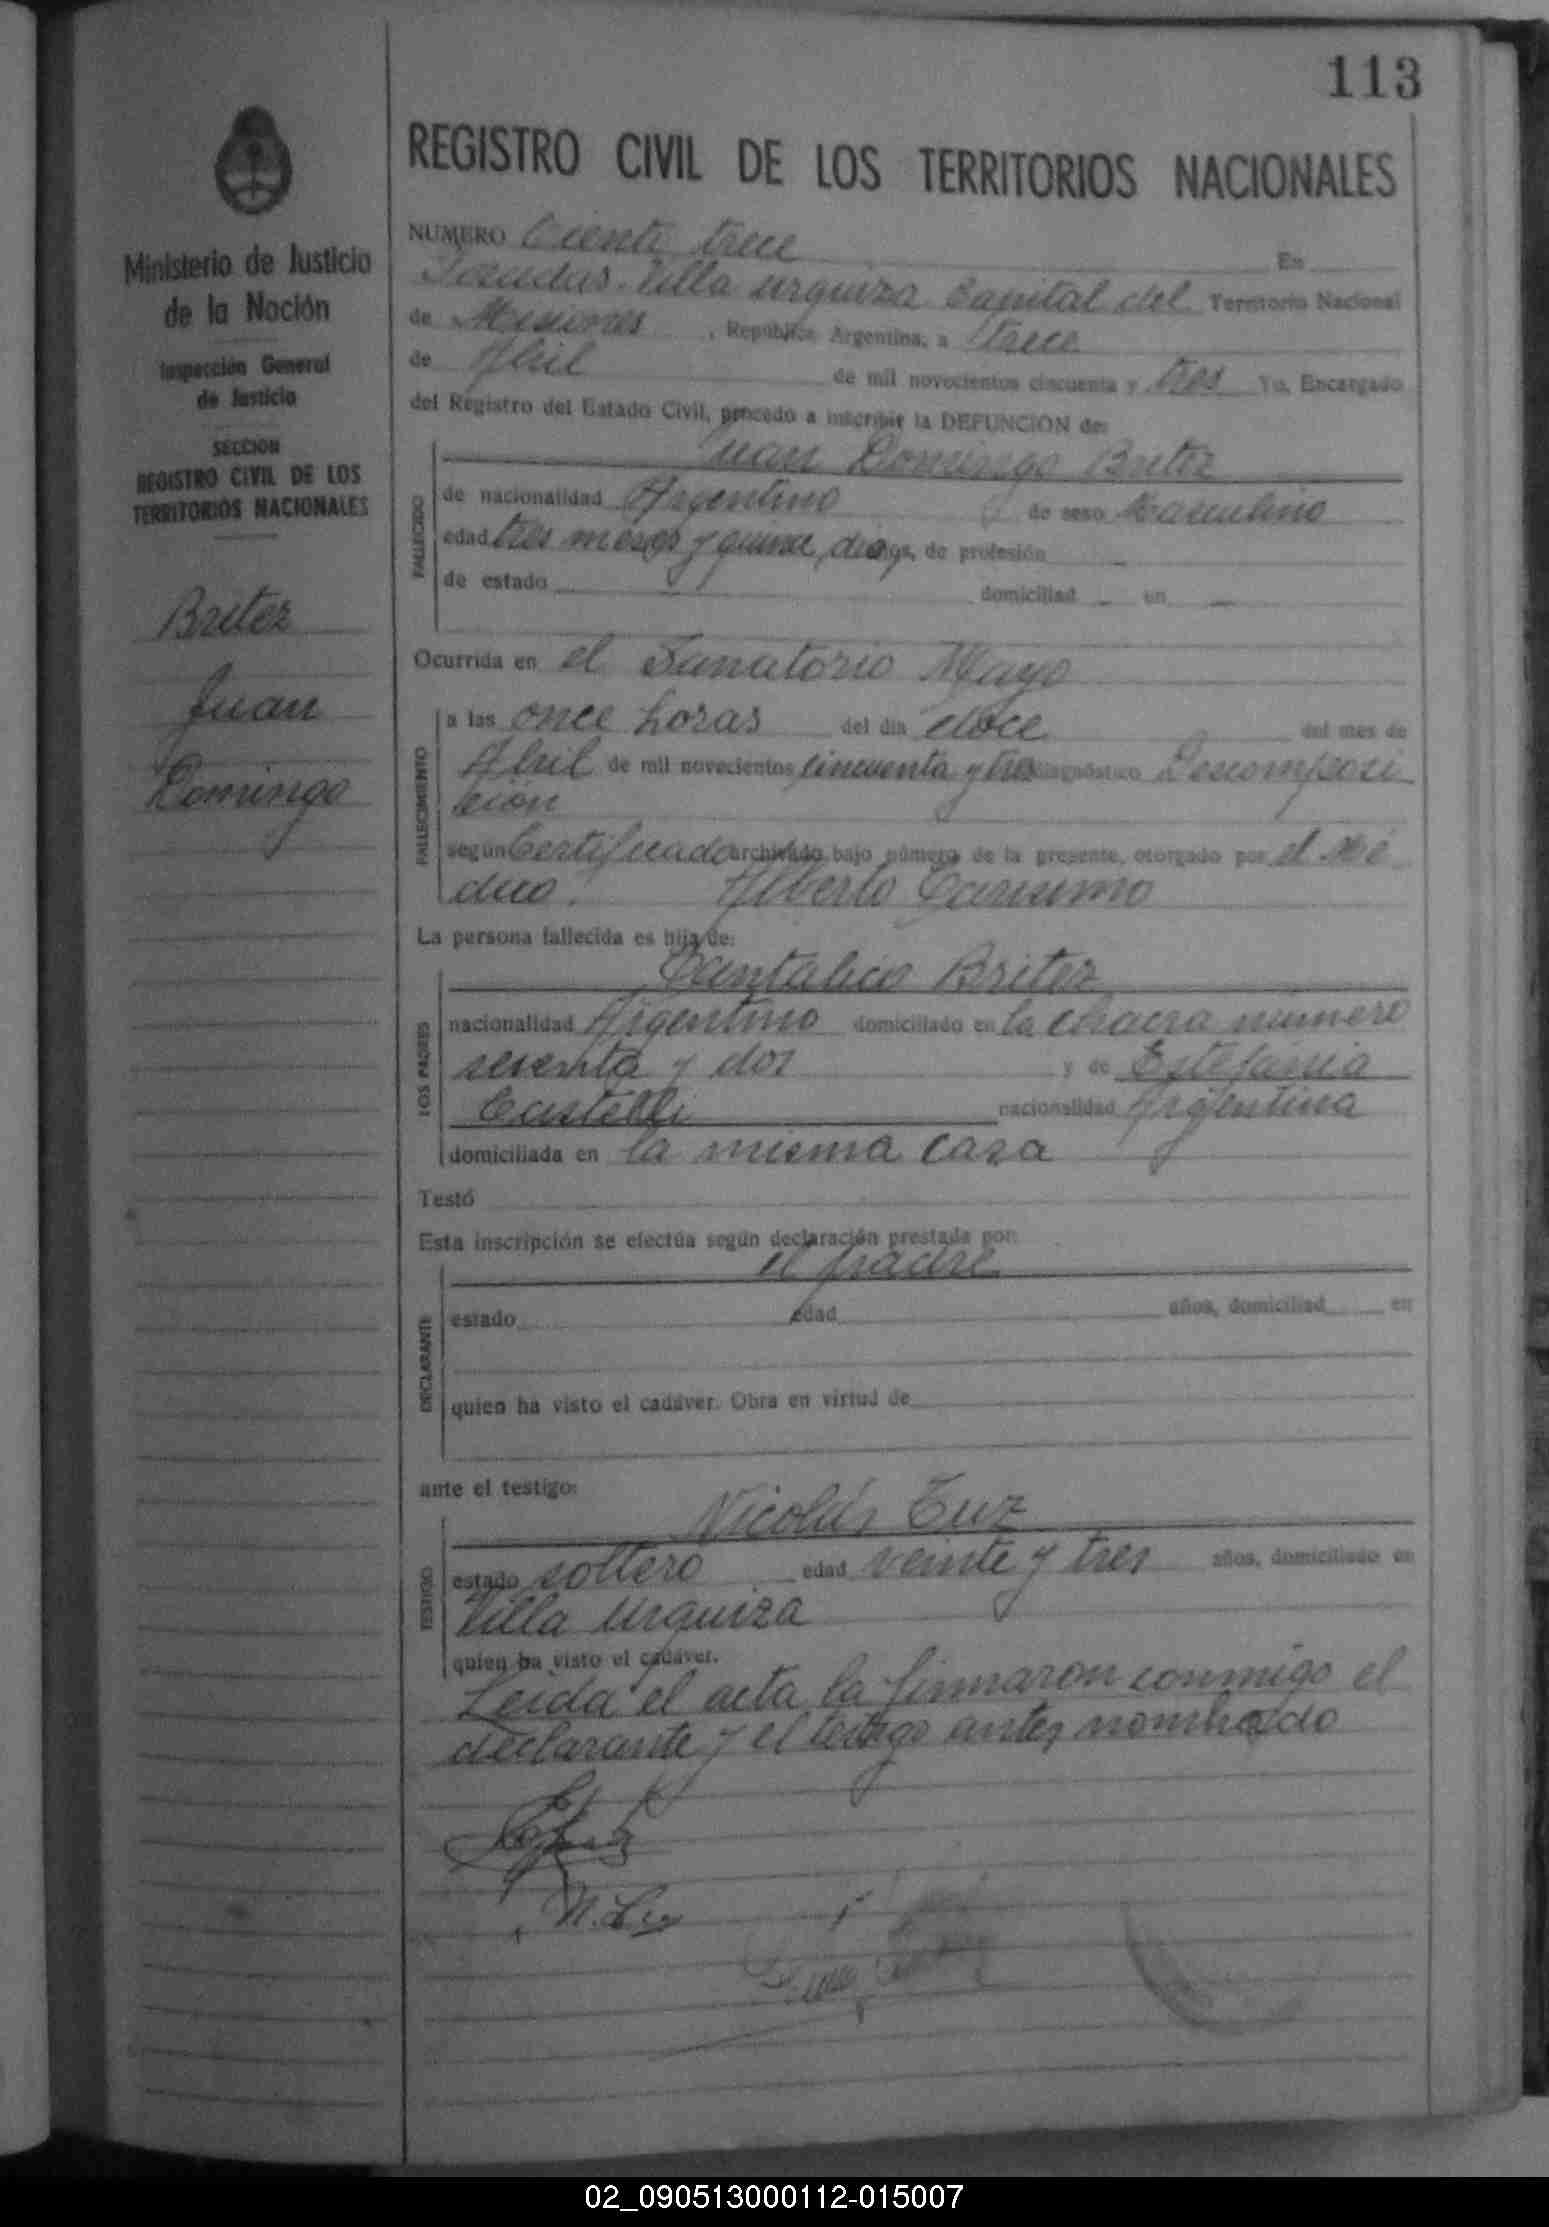 113
REGISTRO CIVIL DE LOS TERRITORIOS NACIONALES
Ministerio de Justicia
de la Nación
Inspección General
de Justicia
SECCION
REGISTRO CIVIL DE LOS
TERRITORIOS NACIONALES
Britez
Juan
Domingo
NUMERO Ciento trece En
Posadas. Villa Urquiza Capital del Territorio Nacional
de Misiones, República Argentina, a trece
de Abril de mil novecientos cincuenta y tres Yo, Encargado
del Registro del Estado Civil, procedo a inscribir la DEFUNCION de:
FALLECIDO
Juan Domingo Britez
de nacionalidad Argentino de sexo Masculino
edad tres meses y quince días, de profesión —
de estado — domiciliad — en —
Ocurrida en el Sanatorio Mayo
FALLECIMIENTO
a las once horas del día doce del mes de
Abril de mil novecientos cincuenta y tres diagnóstico Descomposi
ción
según Certificado archivado bajo número de la presente, otorgado por el Mé
dico. Alberto
La persona fallecida es hijo de:
LOS PADRES
Cantalicio Britez
nacionalidad Argentino domiciliado en la chacra número
sesenta y dos y de Estefania
Castelli nacionalidad Argentina
domiciliada en la misma casa
Testó
Esta inscripción se efectúa según declaración prestada por:
DECLARANTE
el padre
estado edad años, domiciliad en
quien ha visto el cadáver. Obra en virtud de
ante el testigo:
TESTIGO
Nicolás
estado soltero edad veinte y tres años, domiciliado en
Villa Urquiza
quien ha visto el cadáver.
Leida el acta la firmaron conmigo el
declarante y el testigo antes nombrado
02_090513000112-015007